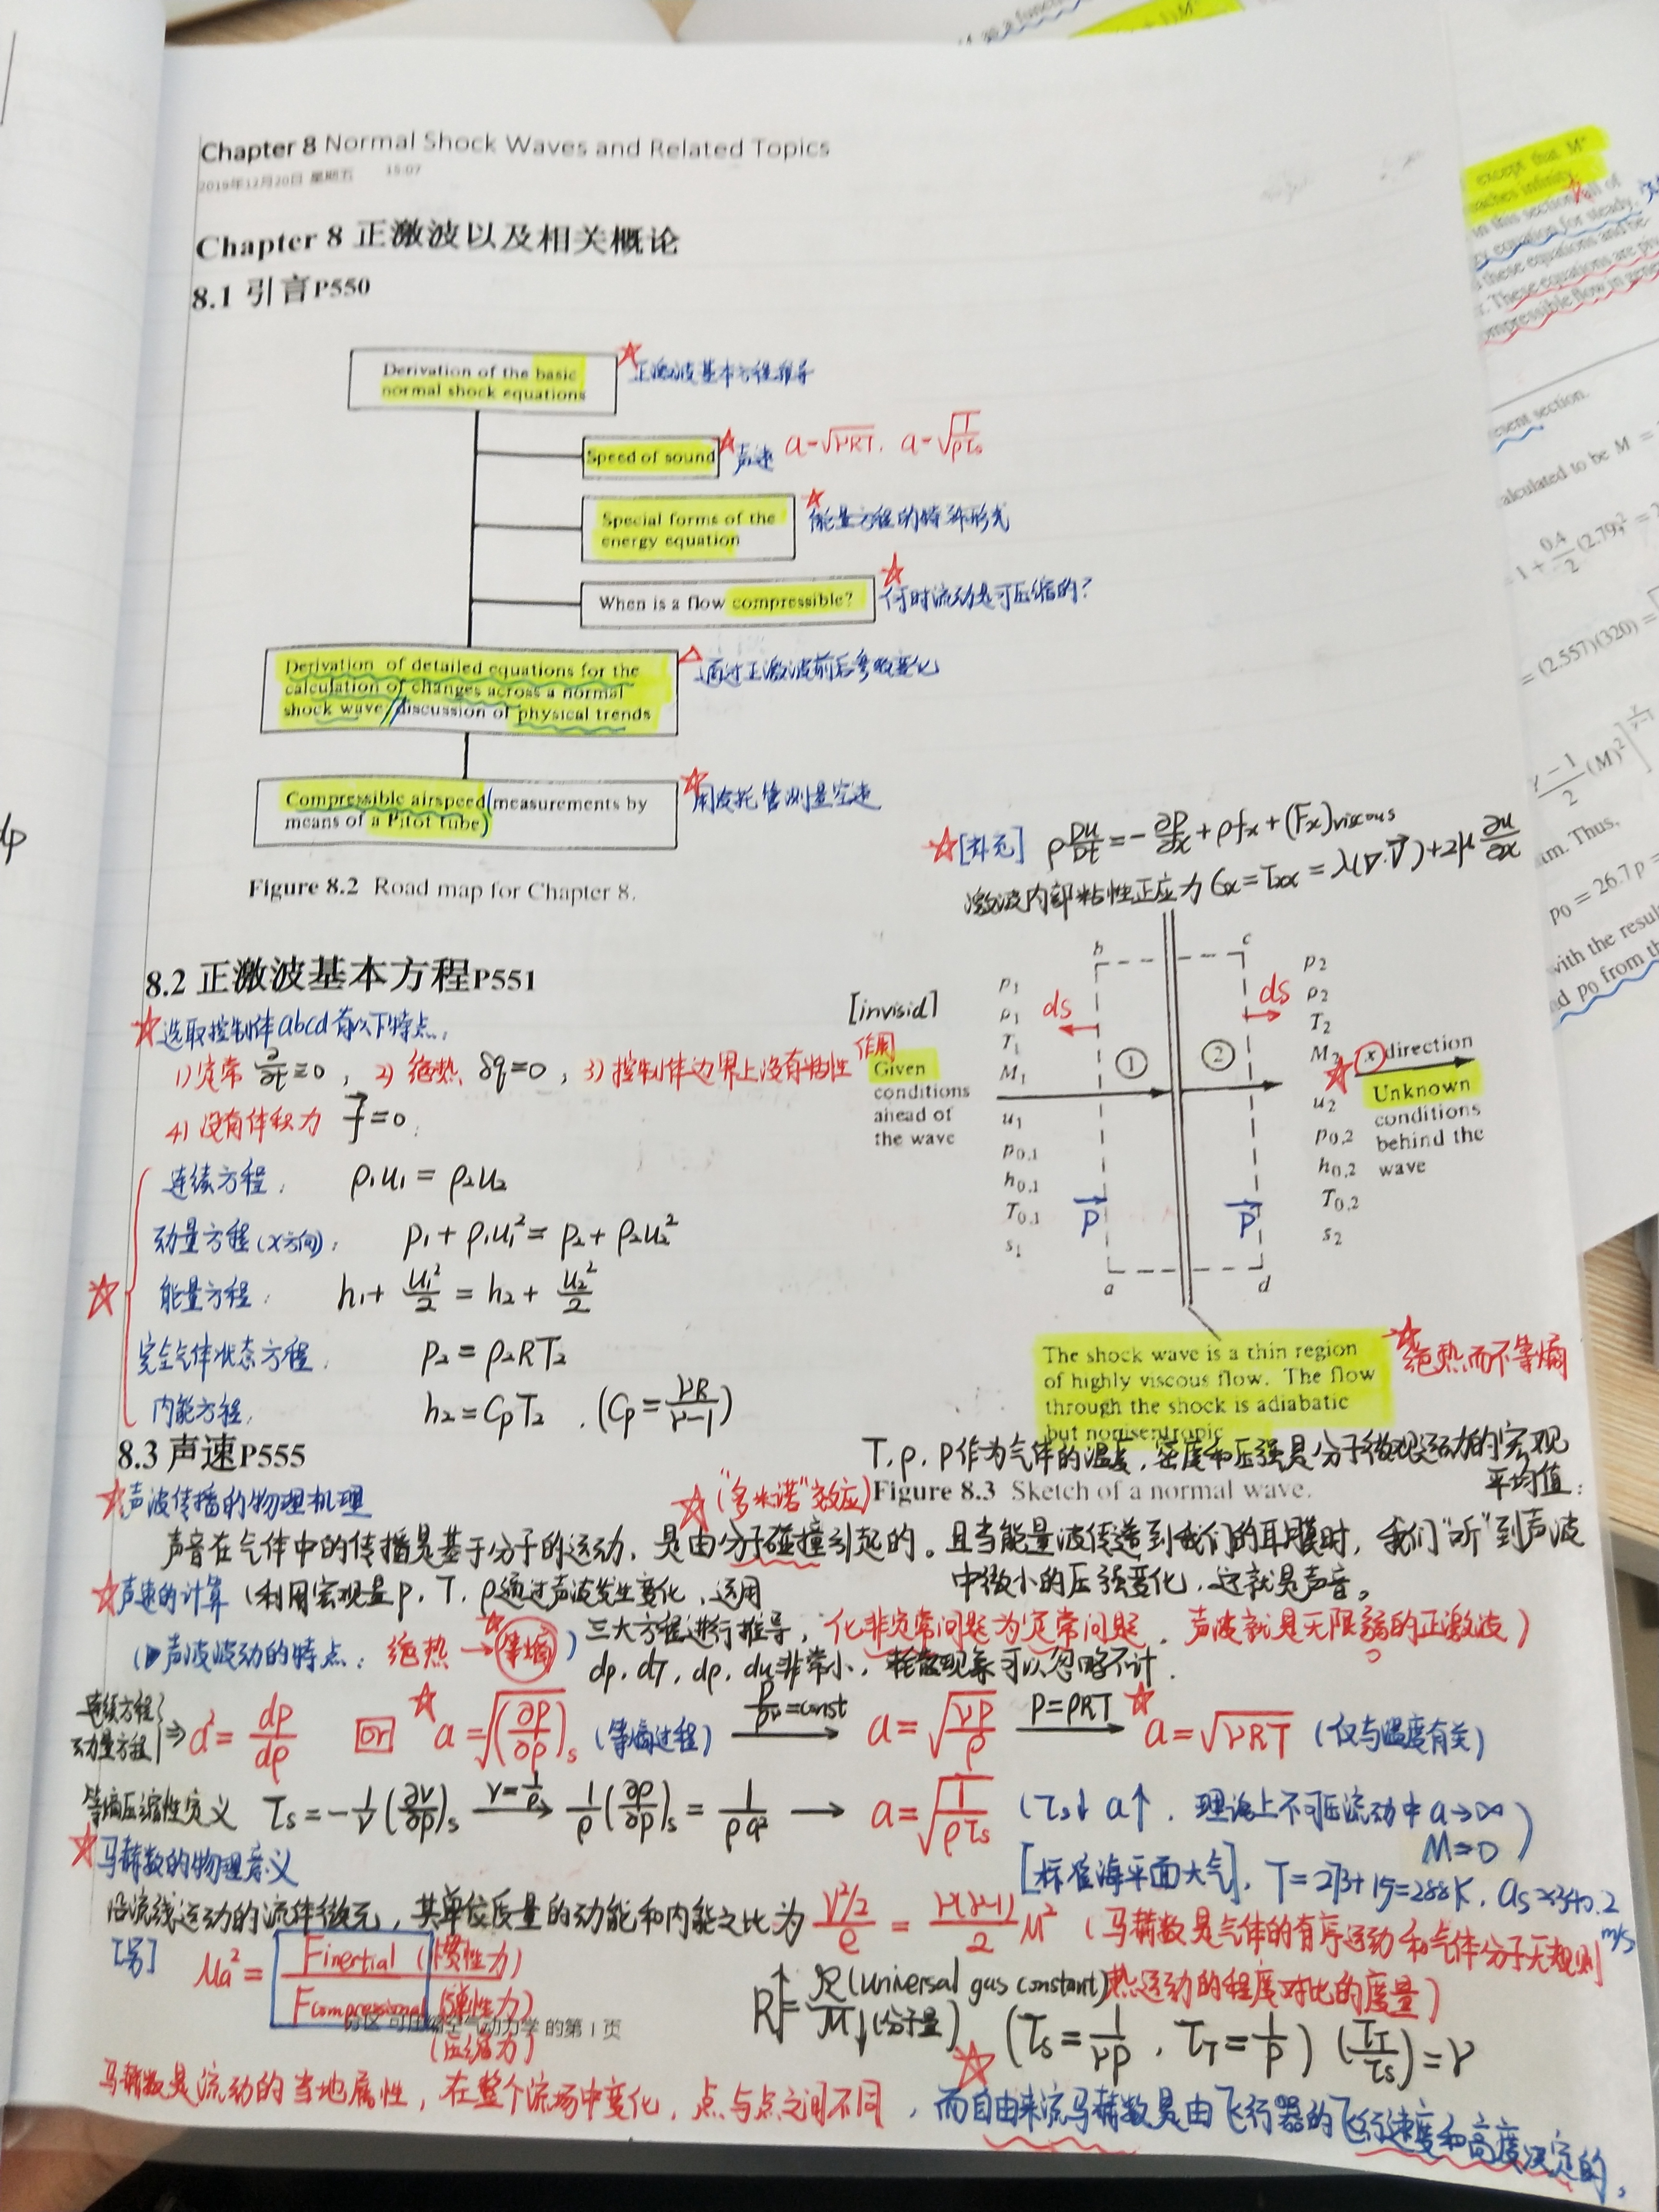 Chapter 8 Normal Shock Waves and Related Topics
2019年12月20日 星期五 15:07
Chapter 8 正激波以及相关概论
8.1 引言P550
Derivation of the basic
normal shock equations
☆正激波基本方程推导
Speed of sound
☆声速 a=√γRT. a=√(1/ρτs)
Special forms of the
energy equation
☆能量方程的特殊形式
When is a flow compressible?
☆何时流动是可压缩的?
Derivation of detailed equations for the
calculation of changes across a normal
shock wave; discussion of physical trends
△通过正激波前后参数变化
Compressible airspeed (measurements by
means of a Pitot tube)
☆用皮托管测量空速
Figure 8.2 Road map for Chapter 8.
☆[补充] ρDu/Dt=-∂p/∂x+ρfx+(Fx)viscous
激波内部粘性正应力 σx=τxx=λ(∇·V)+2μ ∂u/∂x
8.2 正激波基本方程P551
☆选取控制体abcd有以下特点:
1)定常 ∂/∂t≡0, 2)绝热 δq=0, 3)控制体边界上没有粘性作用
4)没有体积力 f=0;
连续方程: ρ1u1=ρ2u2
动量方程(x方向): p1+ρ1u1²=p2+ρ2u2²
☆ 能量方程: h1+u1²/2=h2+u2²/2
完全气体状态方程: p2=ρ2RT2
内能方程: h2=CpT2 . (Cp=γR/(γ-1))
[invisid]
Given
conditions
ahead of
the wave
p1
ρ1
T1
M1
u1
p0,1
h0,1
T0,1
s1
ds
b
c
① ②
P
P
a
d
ds
p2
ρ2
T2
M2
u2
p0,2
h0,2
T0,2
s2
x direction
☆
Unknown
conditions
behind the
wave
The shock wave is a thin region
of highly viscous flow. The flow
through the shock is adiabatic
but nonisentropic
☆绝热而不等熵
Figure 8.3 Sketch of a normal wave.
T, ρ, P作为气体的温度, 密度和压强是分子微观运动的宏观
平均值;
8.3 声速P555
☆声波传播的物理机理
☆("多米诺"效应)
声音在气体中的传播是基于分子的运动, 是由分子碰撞引起的。且当能量波传递到我们的耳膜时, 我们"听"到声波
中微小的压强变化, 这就是声音。
☆声速的计算 (利用宏观量p, T, ρ通过声波发生变化, 运用
三大方程进行推导, 化非定常问题为定常问题. 声波就是无限弱的正激波)
(▷声波波动的特点: 绝热→☆等熵) dp, dT, dρ, du非常小, 耗散现象可以忽略不计.
连续方程
动量方程 ⇒ a²=dp/dρ or ☆a=√(∂p/∂ρ)s (等熵过程) p/ρ^γ=const → a=√(γP/ρ) P=ρRT → ☆a=√γRT (仅与温度有关)
等熵压缩性定义 τs=-1/v(∂v/∂p)s v=1/ρ → 1/ρ(∂ρ/∂p)s=1/(ρa²) → a=√(1/ρτs) (τs↓ a↑, 理论上不可压流动中 a→∞
M=0)
☆马赫数的物理意义
[标准海平面大气], T=273+15=288K, as≈340.2 m/s
沿流线运动的流体微元, 其单位质量的动能和内能之比为 (V²/2)/e = γ(γ-1)/2 M² (马赫数是气体的有序运动和气体分子无规则
热运动的程度对比的度量)
[另] Ma²= Finertial (惯性力)/Fcompressional (弹性力)
(压缩力)
分区 可压缩空气动力学 的第 1 页
R↑=ℛ(universal gas constant)/ℳ↓(分子量) (τs=1/γp, τT=1/p) (τT/τs)=γ
马赫数是流动的当地属性, 在整个流场中变化, 点与点之间不同, ☆而自由来流马赫数是由飞行器的飞行速度和高度决定的。
dp
except that M*
in this section, all of
equation for steady,
these equations and be
These equations are
compressible flow in
section.
calculated to be M =
1 + 0.4/2 (2.79)² =
= (2.557)(320) =
γ-1/2 (M)²
Thus,
p0 = 26.7p =
with the result
p0 from